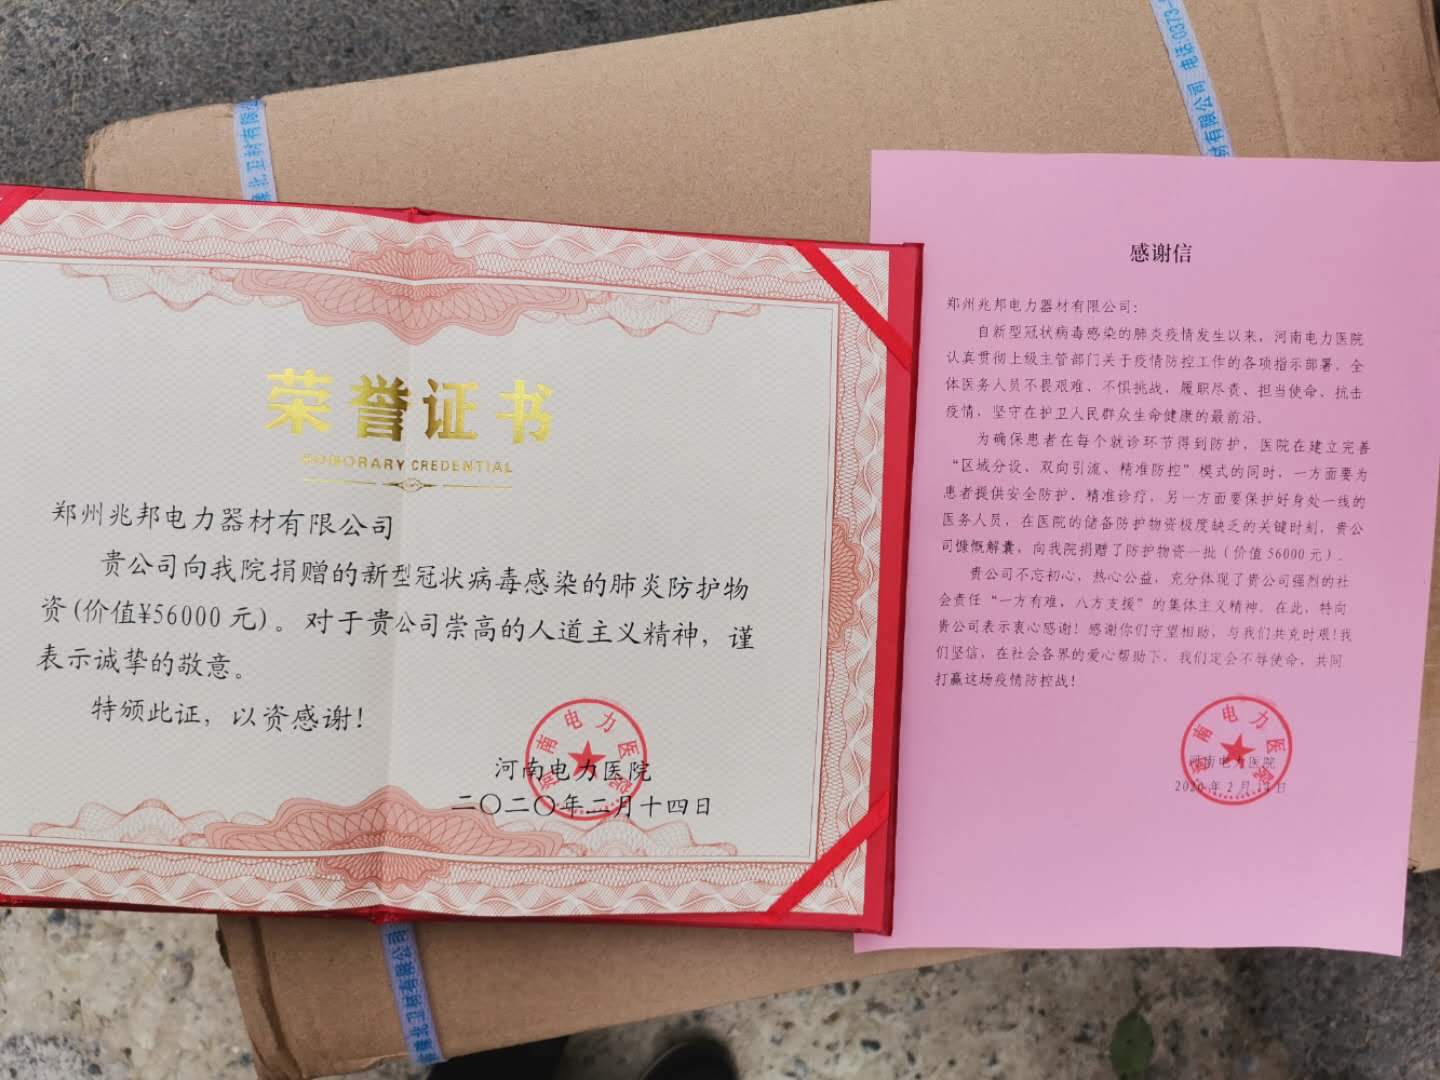 荣誉证书
HONORARY CREDENTIAL
郑州兆邦电力器材有限公司
贵公司向我院捐赠的新型冠状病毒感染的肺炎防护物
资(价值¥56000 元)。对于贵公司崇高的人道主义精神，谨
表示诚挚的敬意。
特颁此证，以资感谢！
河南电力医院
二〇二〇年二月十四日
河南电力医院
感谢信
郑州兆邦电力器材有限公司：
自新型冠状病毒感染的肺炎疫情发生以来，河南电力医院
认真贯彻上级主管部门关于疫情防控工作的各项指示部署，全
体医务人员不畏艰难、不惧挑战，履职尽责、担当使命、抗击
疫情，坚守在护卫人民群众生命健康的最前沿。
为确保患者在每个就诊环节得到防护，医院在建立完善
“区域分设、双向引流、精准防控”模式的同时，一方面要为
患者提供安全防护、精准诊疗，另一方面要保护好身处一线的
医务人员，在医院的储备防护物资极度缺乏的关键时刻，贵公
司慷慨解囊，向我院捐赠了防护物资一批（价值 56000 元）。
贵公司不忘初心，热心公益，充分体现了贵公司强烈的社
会责任“一方有难、八方支援”的集体主义精神。在此，特向
贵公司表示衷心感谢！感谢你们守望相助，与我们共克时艰!我
们坚信，在社会各界的爱心帮助下，我们定会不辱使命，共同
打赢这场疫情防控战！
河南电力医院
2020 年 2 月 14 日
河南电力医院
北卫材有限公
材有限公司 电话:0373-
北卫材有限公司